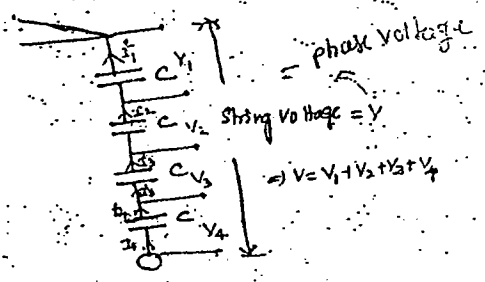 I₁
C V₁
= phase voltage
I₂
C V₂
string voltage = V
I₃
C V₃
⇒ V = V₁ + V₂ + V₃ + V₄
C
I₄
V₄